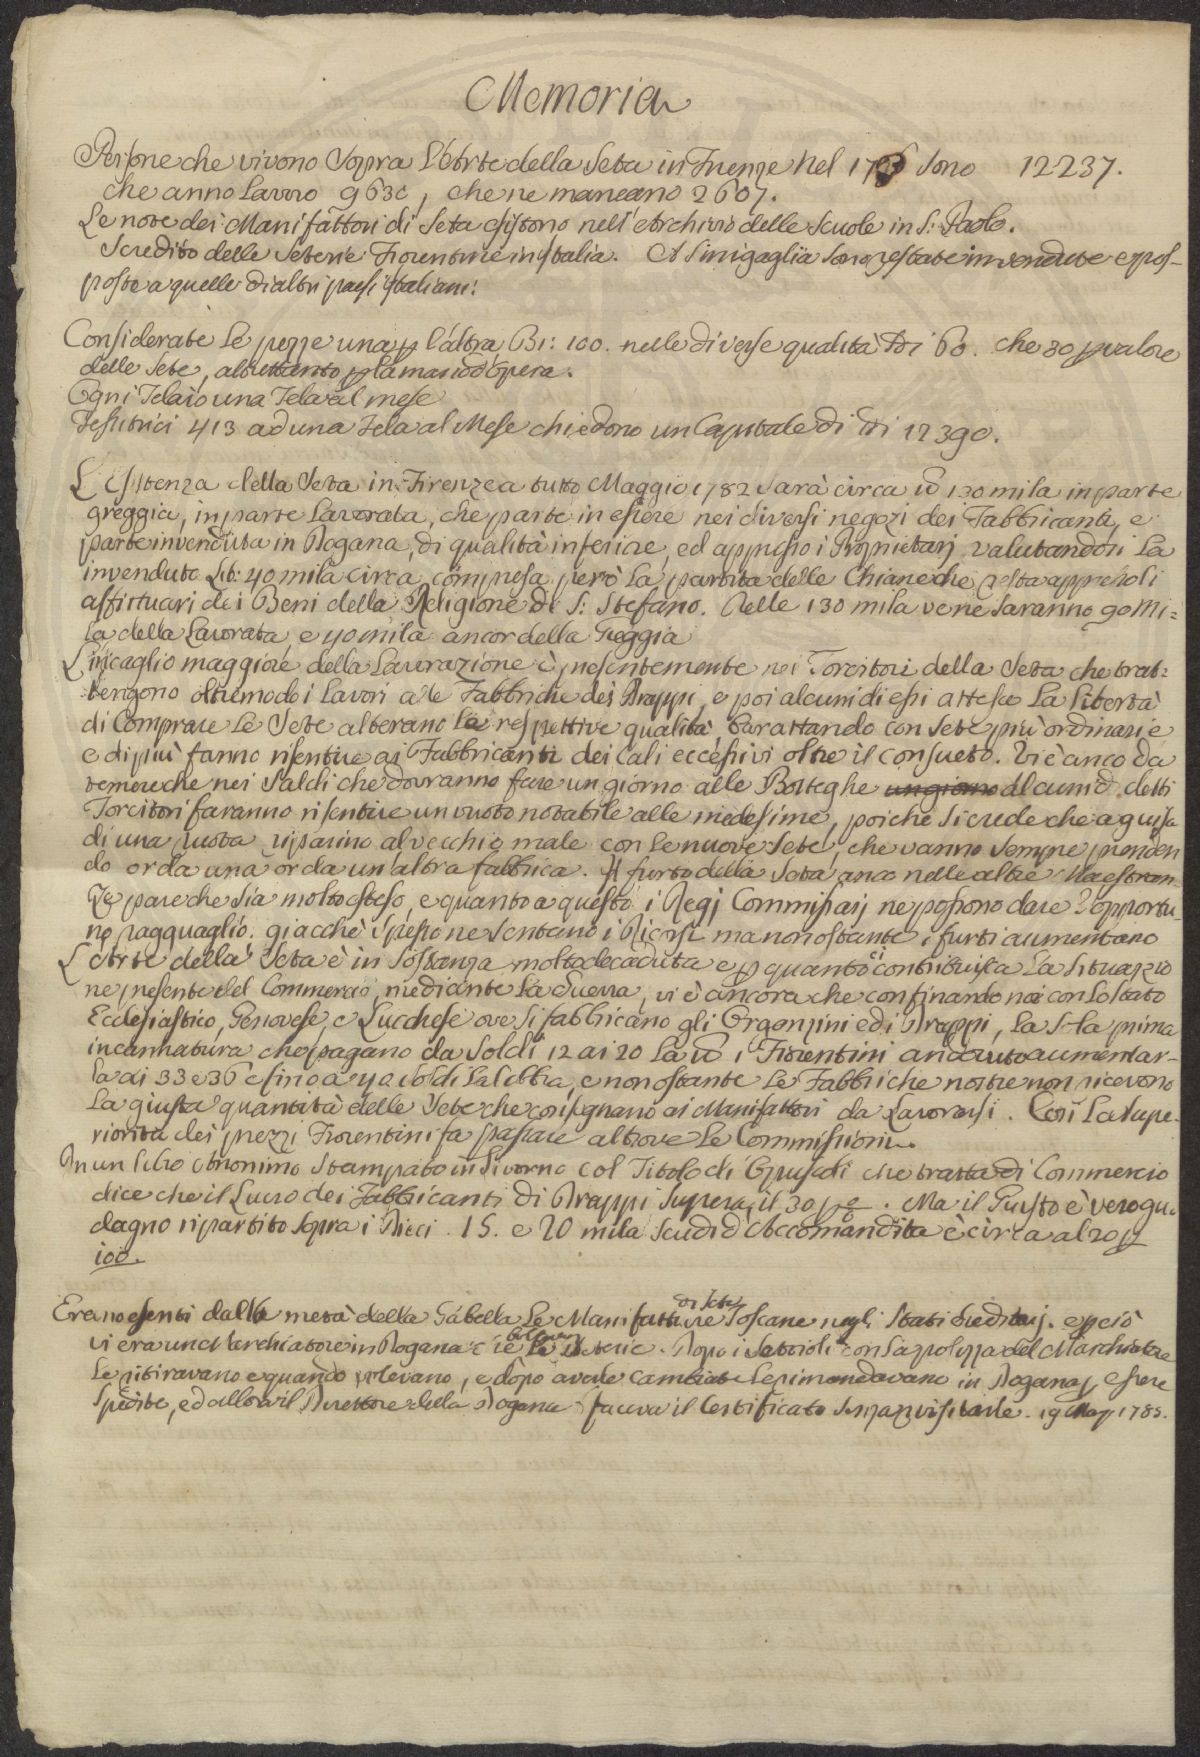 Memoria
Persone che vivono Sopra l'Arte della Seta in Firenze nel 17 Sono 12237.
che anno Lavoro 9630, che ne mancano 2607.
Le note dei Manifattori di Seta esistono nell'Archivio delle Scuole in S: Paolo.
Scredito delle Seterie Fiorentine in Italia. A Sinigaglia sono restate invendute e pos-
poste a quelle di altri paesi Italiani.
Considerate Le pezze una p l'altra Br: 100. nelle diverse qualità di 60. che 30 p valore
delle Sete, altrettanto p la mano d'Opera.
Ogni Telaio una Tela al mese
Tessitrici 413 ad una Tela al Mese chiedono un Capitale di 12390.
L'Esistenza della Seta in Firenze a tutto Maggio 1782 Sarà circa 130 mila in parte
greggia, in parte Lavorata, che parte in essere nei diversi negozi dei Fabbricanti, e
parte invenduta in Dogana, di qualità inferiore, ed appresso i Proprietarj valutandosi La
invenduta Lib: 40 mila circa, compresa però La partita delle Chiane che resta appresso li
affittuari dei Beni della Religione di S: Stefano. Delle 130 mila ve ne saranno 90 mi=
la della Lavorata e 40 mila ancor della Greggia
L'incaglio maggiore della Lavorazione è presentemente nei Torcitori della Seta che trat=
tengono oltremodo i Lavori alle Fabbriche dei Drappi, e poi alcuni di essi attesa La Libertà
di Comprare Le Sete alterano Le respettive qualità, barattando con Sete più ordinarie
e di più fanno risentire ai Fabbricanti dei Cali eccessivi oltre il consueto. Vi è anco da
temere che nei Saldi che dovranno fare un giorno alle Botteghe un giorno Alcuni d. detti
Torcitori faranno risentire un vuoto notabile alle medesime, poichè Si crede che a guisa
di una ruota riparino al vecchio male con Le nuove Sete, che vanno Sempre prenden
do or da una or da un'altra fabbrica. Il furto della Seta anco nelle altre Maestran-
ze pare che Sia molto esteso, e quanto a questo i Regj Commissarj ne possono dare l'opportu-
no ragguaglio. giacchè Spesso ne Sentano i Ricorsi ma non ostante i furti aumentano
L'Arte della Seta è in Sostanza molto decaduta e p quanto vi contribuisca La Situazio
ne presente del Commercio, mediante La Guerra, vi è ancora che confinando noi con Lo Stato
Ecclesiastico, Genovese, e Lucchese ove Si fabbricano gli Organzini ed i Drappi, La S-la prima
incannatura che pagano da Soldi 12 ai 20 La i Fiorentini an dovuto aumentar-
la ai 33 e 36 e fino a 40 Soldi La Libbra, e non ostante Le Fabbriche nostre non ricevono
La giusta quantità delle Sete che consegnano ai Manifattori da Lavorarsi. Così La Supe-
riorità dei prezzi Fiorentini fa passare altrove Le Commissioni.
In un Libro Anonimo Stampato in Livorno col Titolo di Opuscoli che tratta di Commercio
dice che il Lucro dei Fabbricanti di Drappi Supera il 30 p %. Ma il Giusto è vero gua
dagno ripartito Sopra i Dieci. 15. e 20 mila Scudi d'Accomandita è circa al 20 p
100.
Erano esenti dalla metà della Gabella Le Manifatture di Seta Toscane negli Stati Ereditarj. e p ciò
vi era un Marchiatore in Dogana Le Seterie. Dopo i Setaioli con La polizza del Marchiatore
Le ritiravano e quando volevano, e dopo averle cambiate Le rimandavano in Dogana p essere
Spedite, ed allora il Direttore della Dogana faceva il Certificato Senza rivisitarle. 19 Mag 1785.